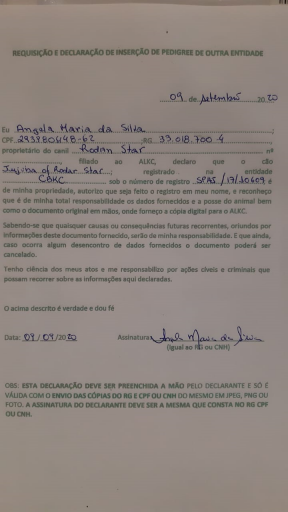 REQUISIÇÃO E DECLARAÇÃO DE INSERÇÃO DE PEDIGREE DE OUTRA ENTIDADE
09 de setembro 2020
Eu Angela Maria da Silva
CPF 293880648-62 RG 33.018.700-4
proprietário do canil Rodan Star nº
filiado ao ALKC, declaro que o cão
of Rodar Star registrado na entidade
CBKC sob o número de registro SPAS/17/10609 e
de minha propriedade, autorizo que seja feito o registro em meu nome, e reconheço
que é de minha total responsabilidade os dados fornecidos e a posse do animal bem
como o documento original em mãos, onde forneço a cópia digital para o ALKC.
Sabendo-se que qualquer causas ou consequências futuras recorrentes, oriundos por
informações deste documento fornecido, serão de minha responsabilidade. E que ainda,
caso ocorra algum desencontro de dados fornecidos o documento poderá ser
cancelado.
Tenho ciência dos meus atos e me responsabilizo por ações cíveis e criminais que
possam recorrer sobre as informações aqui declaradas.
O acima descrito é verdade e dou fé
Data: 09/09/2020 Assinatura:
(Igual ao RG ou CNH)
OBS: ESTA DECLARAÇÃO DEVE SER PREENCHIDA A MÃO PELO DECLARANTE E SÓ É
VÁLIDA COM O ENVIO DAS CÓPIAS DO RG E CPF OU CNH DO MESMO EM JPEG, PNG OU
FOTO. A ASSINATURA DO DECLARANTE DEVE SER A MESMA QUE CONSTA NO RG CPF
OU CNH.